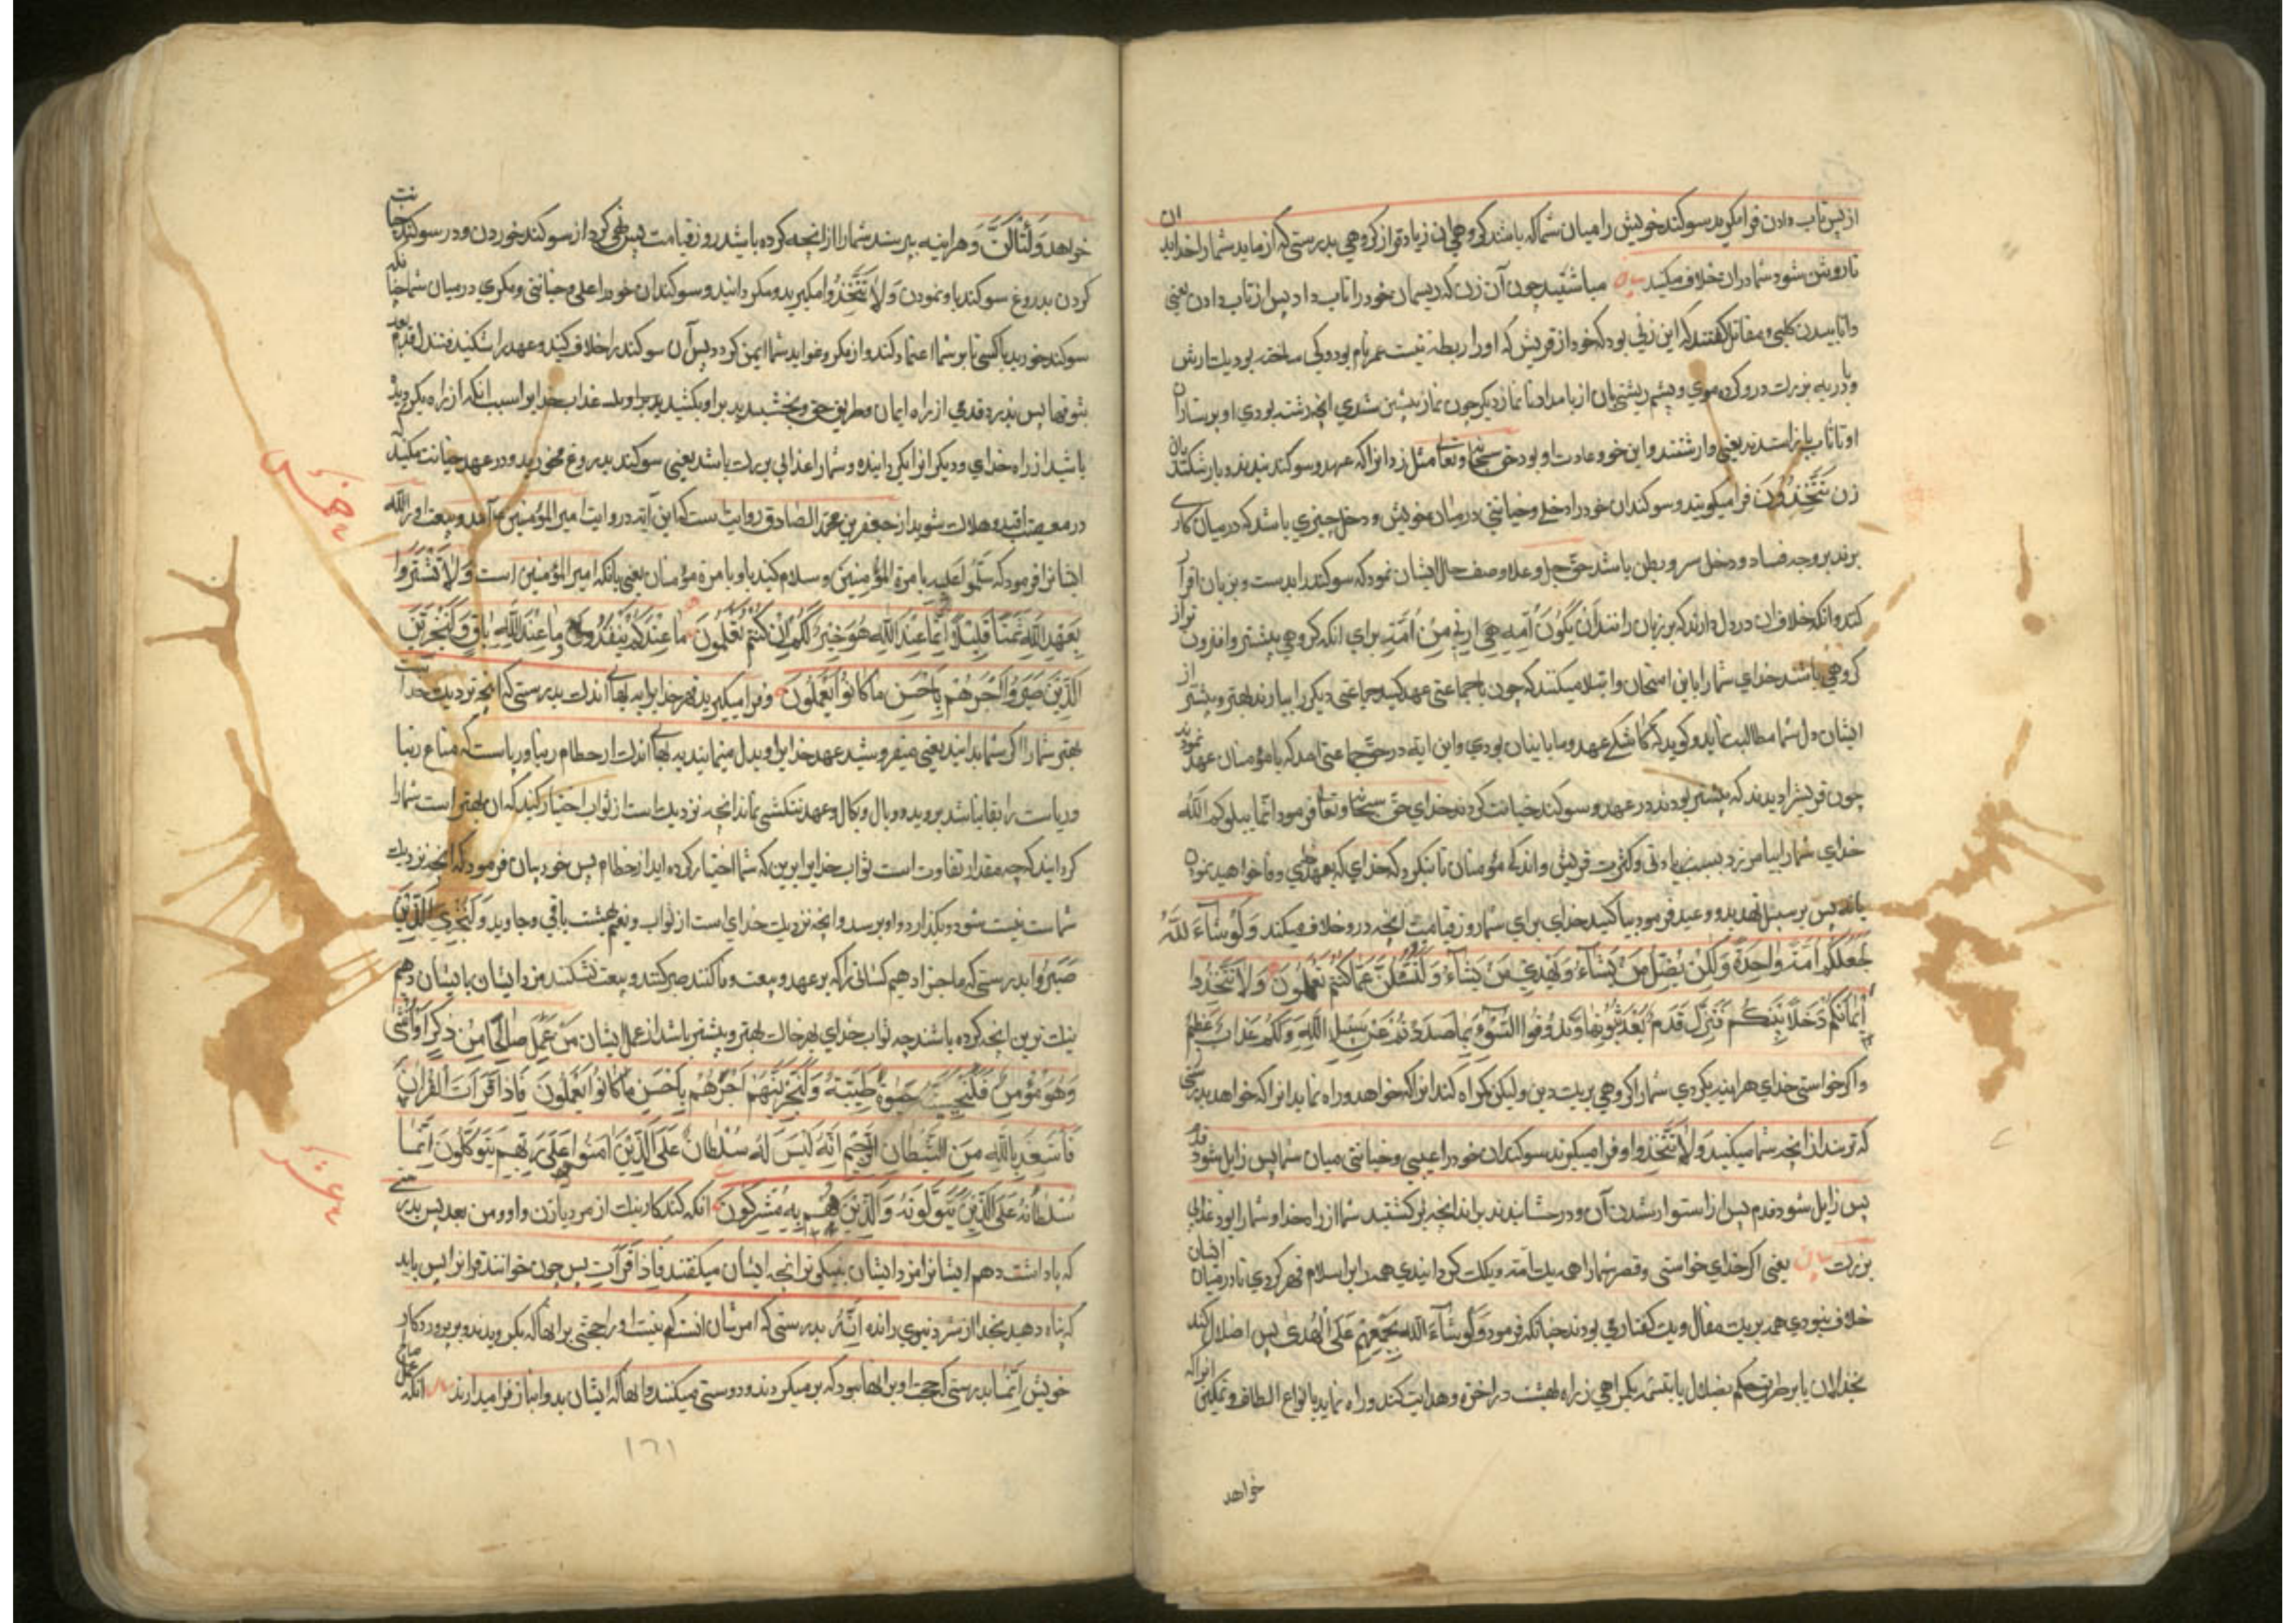 از پس تاب دادن فرا مکیرید سوکند خویش را میان شما که باشد کروهی ان زیادتر از کروهی بدرستی که ازماید شما را خدا بدان
تا روشن شود شما را در ان خلاف میکنید بیان مباشید چون آن زن که ریسمان خود را تاب داد پس از تاب دادن یعنی
و تابیدن کلبی و مقاتل کفتند که این زنی بود که خود از قریش که او را ربطه بنت عمر نام بود و کی ساخته بود یک ارش
و در به بزرک در و کرده موی و پشم ریشتی بان از بامداد تا نماز دیکر چون نماز پیشین شدی انچه رشته بودی او پرستاران
او تا تاب باز استدند یعنی وا رشتند و این خو و عادت او بود حق سبحانه و تعالی مثل زد انرا که عهد و سوکند ببندند و باز شکنند بان
زن تَتَّخِذُونَ فرا میکویند و سوکندان خود را دخلی و خیانتی در میان خویش و دخل چیزی باشد که در میان کاری
برند بر وجه فساد و دخل سر و بطن باشد حق جل و علا وصف حال ایشان نمود که سوکند را بدست و بزبان اقرار
کنند وانکه خلاف ان در دل دارند که بر زبان رانند اَنْ یَکُونَ اُمَّةٌ هِیَ اَرْبی مِنْ اُمَّةٍ برای انکه کروهی بیشتر و افزون تر از
کروهی باشد خدای شما را باین امتحان و ابتلا میکند که چون با جماعتی عهد کنید جماعتی دیکر را بیارند بهتر و بیشتر از
ایشان دل شما مطالبت نماید و کوید که کاشکی عهد و ما با ینان بودی و این ایه در حق جماعتی امد که با مؤمنان عهد نمودند
چون قریش را دیدند که بیشتر بودند در عهد و سوکند خیانت کردند خدای حق سبحانه و تعالی فرمود انما یبلوکم الله
خدای شما را بیامرزد بسبب زیادتی و کثرت قریش و اندکی مؤمنان تا بنکرد که خدای که بعهد و وفا خواهید نمود
یا نه پس بر سبیل تهدید و وعید فرمود بیاکید خدای برای شما روز قیامت انچه در و خلاف میکنند وَلَوْ شاءَ اللّهُ
لَجَعَلَکُمْ اُمَّةً واحِدَةً وَلکِنْ یُضِلُّ مَنْ یَشاءُ وَیَهْدی مَنْ یَشاءُ وَلَتُسْئَلُنَّ عَمّا کُنْتُمْ تَعْمَلُونَ وَلا تَتَّخِذُوا
اَیْمانَکُمْ دَخَلاً بَیْنَکُمْ فَتَزِلَّ قَدَمٌ بَعْدَ ثُبُوتِها وَتَذُوقُوا السُّوءَ بِما صَدَدْتُمْ عَنْ سَبیلِ اللّهِ وَلَکُمْ عَذابٌ عَظیمٌ
و اکر خواستی خدای هراینه بکردی شما را کروهی بریک دین ولیکن کمراه کند انرا که خواهد و راه نماید انرا که خواهد بدرستی
که ترسند از انچه شما میکنید وَلا تَتَّخِذُوا و فرا میکیرند سوکندان خود را عیبی و خیانتی میان شما پس زایل شود قدم
پس زایل شود قدم پس از استوار شدن آن و در چشایدند بر اندانچه برکشتید شما از راه خدا و شما را بود عذابی
بزرک بیان یعنی اکر خدای خواستی و قصر شما را همه یک امت و یکملت کردانیدی همه را بر اسلام قهر کردی تا در میان ایشان
خلاف نبودی همه بریک مقال و یک کفتار می بودند چنانکه فرمود وَلَوْ شاءَ اللّهُ لَجَمَعَهُمْ عَلَی الْهُدی پس اضلال کند
بخذلان یا بر طریق حکم بضلال یا بتسمه بکمراهی زراه بهشت در اخرة و هدایت کند و راه نماید بانواع الطاف و تمکین انرا که
خواهد
خواهد وَلَتُسْئَلُنَّ و هراینه بپرسند شما را از انچه کرده باشید روز قیامت پس نهی کرد از سوکند خوردن و در سوکند خیانت
کردن بدروغ سوکند یاد نمودن وَلا تَتَّخِذُوا مکیرید و مکردانید و سوکندان خود را دغلی و خیانتی و مکری در میان شما چنانکه
سوکند خورید با کسی تا بر شما اعتماد کند و از مکر و غوایت شما ایمن کردد پس آن سوکند را خلاف کنید و عهد را شکنید فتزل قدم بعد
ثبوتها پس بلغزد قدمی از راه ایمان و طریق حق و بچشید بدیرا و بکشید بدیرا و بلا عذاب خدا بر اسبب انکه از راه بکردید
باشید از راه خدای و دیکرانرا بکردانیده و شما را عذابی بزرک باشد یعنی سوکند بدروغ مخورید و در عهد خیانت مکنید که
در معصیت افتید و هلاک شوید از جعفر بن محمد الصادق روایت است که این ایة در ولایت امیر المؤمنین آمد و بیعت او را الله
ایشانرا فرمود که سلموا علیه بامرة المؤمنین و سلام کنید باو بامرة مؤمنان یعنی بانکه امیر المؤمنین است وَلا تَشْتَرُوا
بِعَهْدِ اللّهِ ثَمَناً قَلیلاً اِنَّما عِنْدَ اللّهِ هُوَ خَیْرٌ لَکُمْ اِنْ کُنْتُمْ تَعْلَمُونَ ما عِنْدَکُمْ یَنْفَدُ وَما عِنْدَ اللّهِ باقٍ وَلَنَجْزِیَنَّ
الَّذینَ صَبَرُوا اَجْرَهُمْ بِاَحْسَنِ ما کانُوا یَعْمَلُونَ و فرا میکیرید بعهد خدا برا بهای اندک بدرستی که انچه نزدیک خداست
بهتر شما را اکر شما بدانید یعنی مفروشید عهد خدایرا و بدل منمایید به بهای اندک از حطام دنیا و ریاست که متاع دنیا
و ریاست را بقا نباشد برود و وبال و نکال و عهد شکنی بماند انچه نزدیک است از ثواب اختیار کنید که ان بهتر است شما را
کر دانید که چه مقدار تفاوت است ثواب خدایرا برین که شما اختیار کرده اید از حطام پس خود بیان فرمود که انچه نزدیک
شماست نیست شود و بکذارد و او برسد و انچه نزدیک خدای است از ثواب و نعیم بهشت باقی و جاوید وَلَنَجْزِیَنَّ الَّذینَ
صَبَرُوا بدرستی که ما جزا دهیم کسانی را که بر عهد و بیعت وفا کنند صبر کنند و بیعت نشکنند مزد ایشان با یشان دهم
نیک ترین انچه کرده باشند چه ثواب خدای بهر حالت بهتر و بیشتر باشد از عمل ایشان مَنْ عَمِلَ صالِحاً مِنْ ذَکَرٍ اَوْ اُنْثی
وَهُوَ مُؤْمِنٌ فَلَنُحْیِیَنَّهُ حَیوةً طَیِّبَةً وَلَنَجْزِیَنَّهُمْ اَجْرَهُمْ بِاَحْسَنِ ما کانُوا یَعْمَلُونَ فَاِذا قَرَأْتَ الْقُرْانَ
فَاسْتَعِذْ بِاللّهِ مِنَ الشَّیْطانِ الرَّجیمِ اِنَّهُ لَیْسَ لَهُ سُلْطانٌ عَلَی الَّذینَ امَنُوا وَعَلی رَبِّهِمْ یَتَوَکَّلُونَ اِنَّما
سُلْطانُهُ عَلَی الَّذینَ یَتَوَلَّوْنَهُ وَالَّذینَ هُمْ بِهِ مُشْرِکُونَ انکه کند کار نیک از مرد یا زن و او ومن بعد پس بدرستی
که پاداشت دهم ایشانرا مزد ایشان بنیکوتر انچه ایشان میکفتند فَاِذا قَرَأْتَ پس چون خوانند قرانرا پس باید
که پناه دهید بخدا از شر دیو رانده اِنَّهُ بدرستی که امر شان انست که نیست او را حجتی بر انها که بکرویدند و بر پروردکار
خویش اِنَّما بدرستی که حجت او بر انها بود که برمیکردند و دوستی میکنند و انها که ایشان بدو انباز فرا میدارند بیان انکه عمل صالح
١٦١